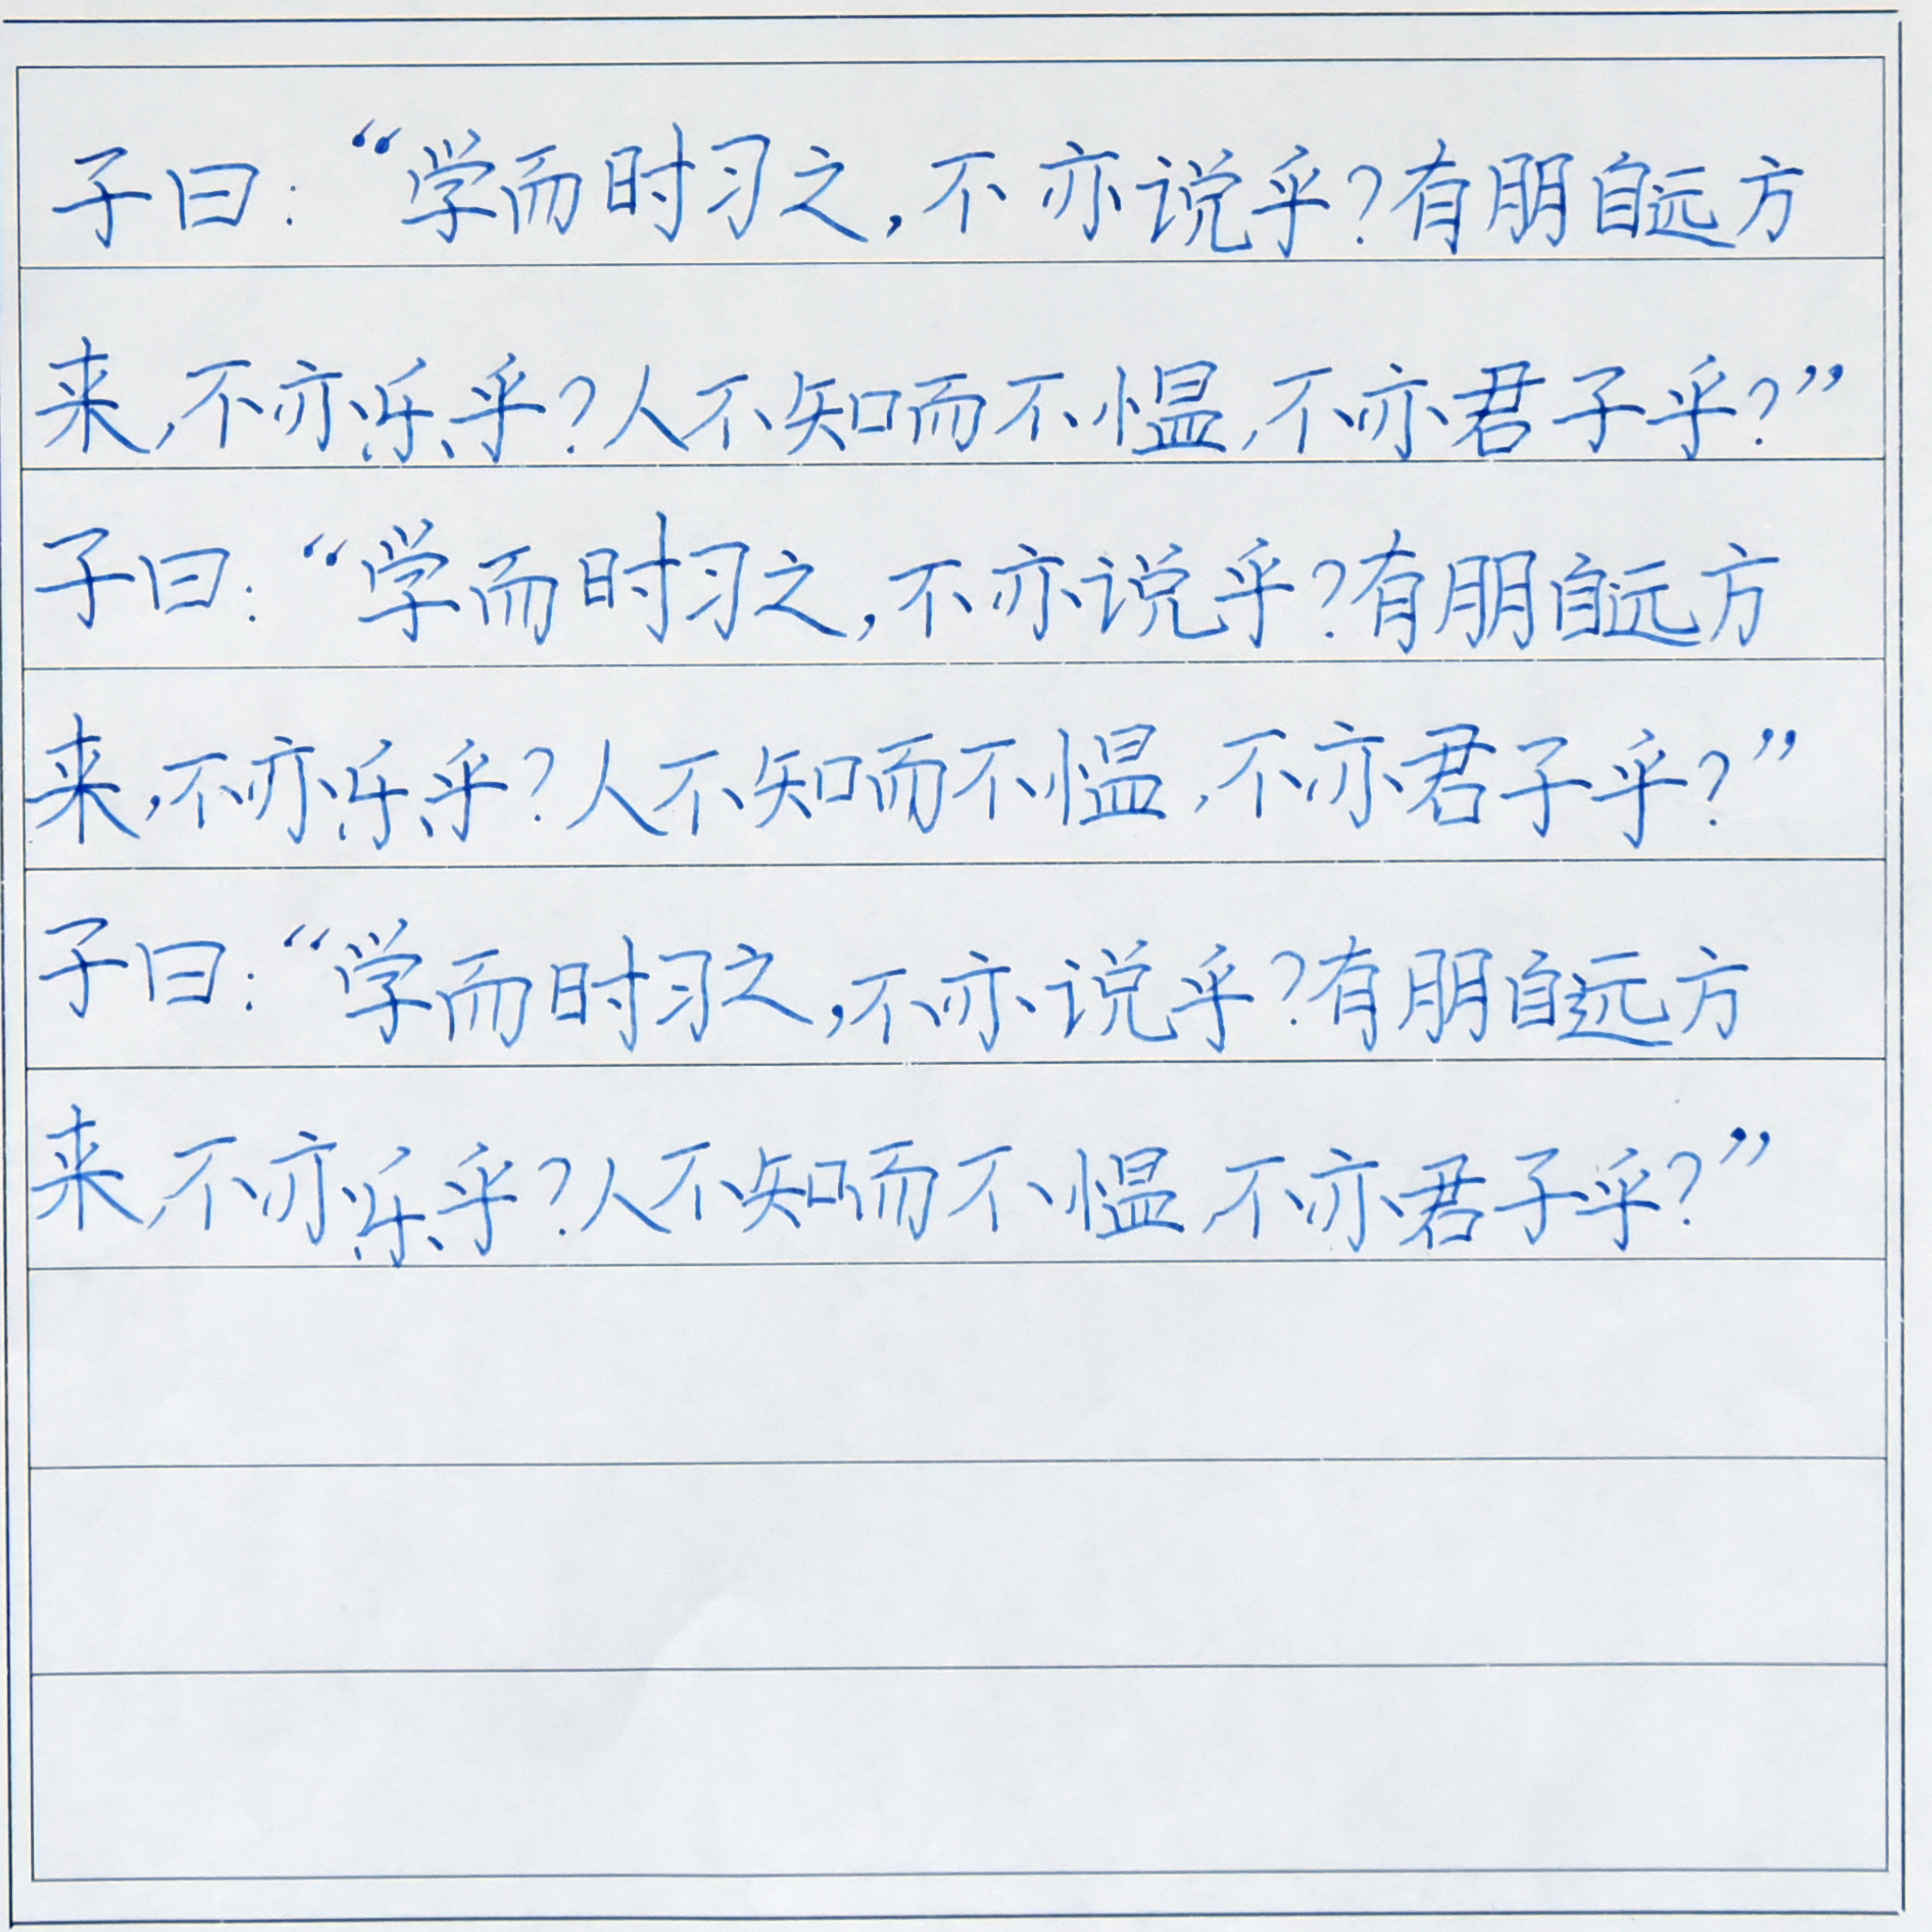 子曰：“学而时习之，不亦说乎？有朋自远方
来，不亦乐乎？人不知而不愠，不亦君子乎？”
子曰：“学而时习之，不亦说乎？有朋自远方
来，不亦乐乎？人不知而不愠，不亦君子乎？”
子曰：“学而时习之，不亦说乎？有朋自远方
来，不亦乐乎？人不知而不愠，不亦君子乎？”